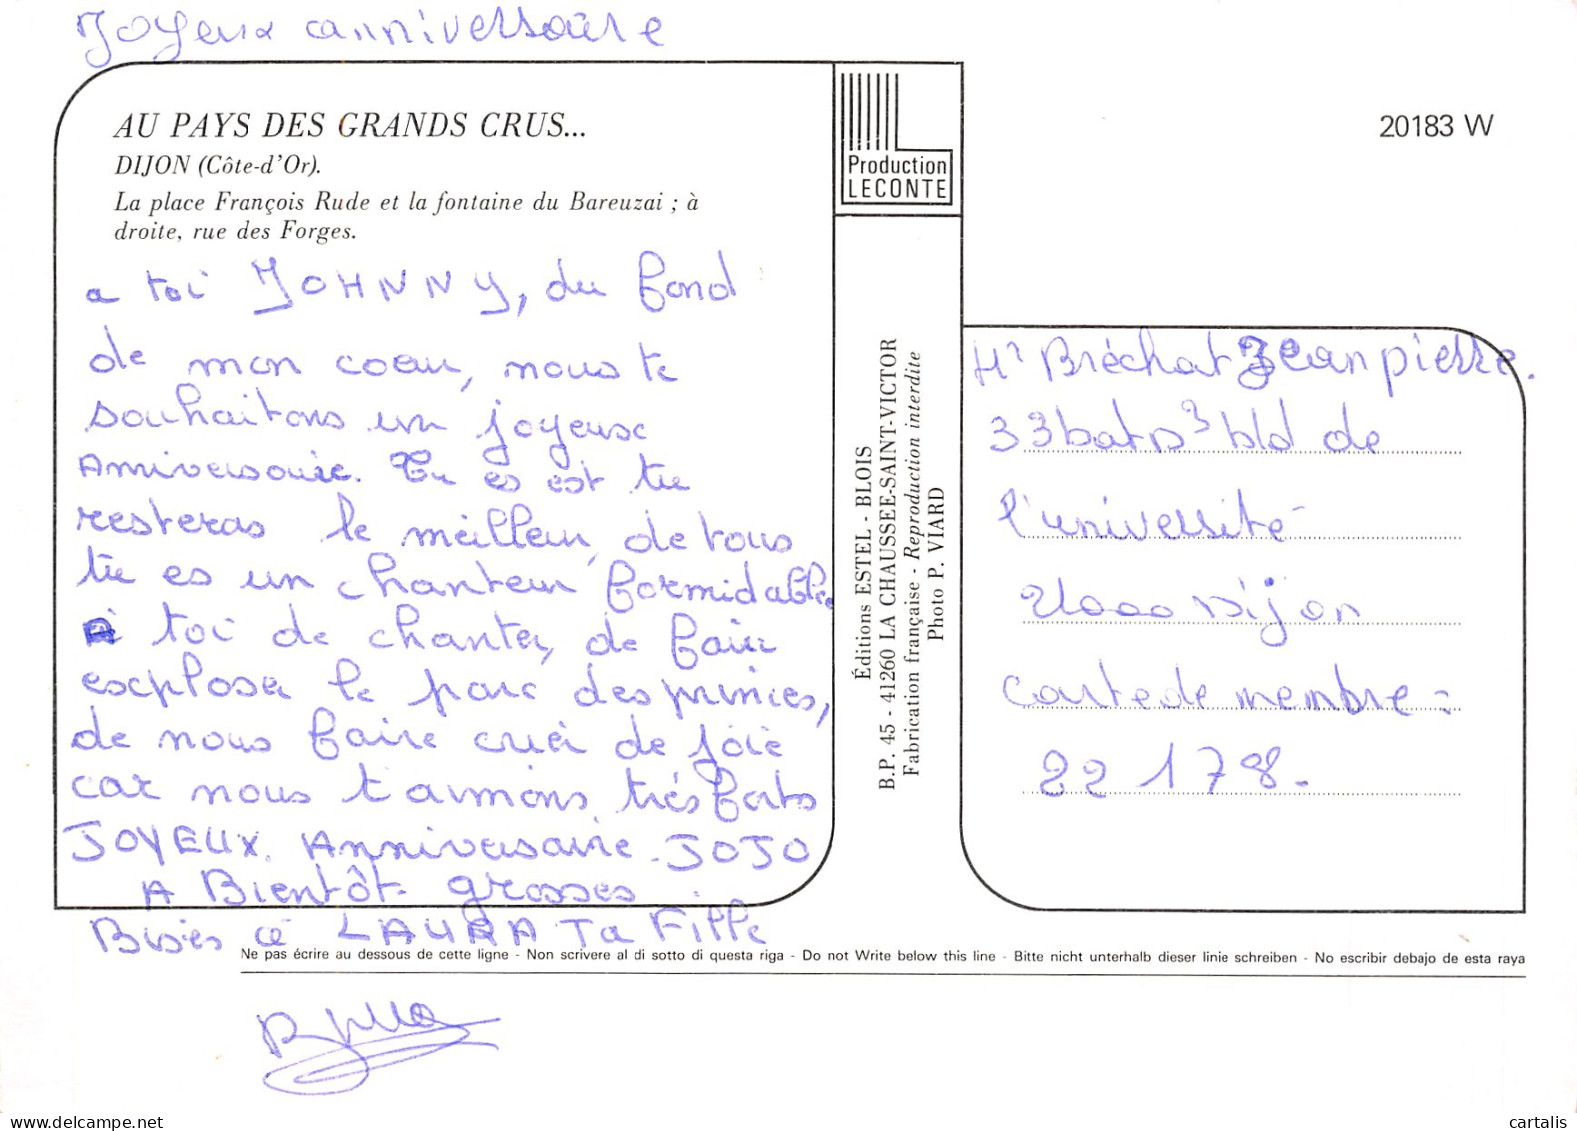 Joyeux anniversaire
AU PAYS DES GRANDS CRUS...
DIJON (Côte-d'Or).
La place François Rude et la fontaine du Bareuzai ; à
droite, rue des Forges.
a toi JOHNNY, du fond
de mon coeur, nous te
souhaitons un joyeuse
Anniversaire. Tu es est tu
resteras le meilleur, de tous
tu es un chanteur formidable
A toi de chanter, de faire
exploser le parc des princes,
de nous faire crier de joie
car nous t'aimons très forts
JOYEUX. Anniversaire. JOJO
A Bientôt. grosses
Bises à LAURA Ta Fille
Production
LECONTE
Éditions ESTEL - BLOIS
B.P. 45 - 41260 LA CHAUSSEE-SAINT-VICTOR
Fabrication française - Reproduction interdite
Photo P. VIARD
20183 W
Mr Bréchat Jean pierre.
33 bat D3 bld de
l'université
21000 Dijon
carte de membre :
22 178.
Ne pas écrire au dessous de cette ligne - Non scrivere al di sotto di questa riga - Do not Write below this line - Bitte nicht unterhalb dieser linie schreiben - No escribir debajo de esta raya
delcampe.net
cartalis